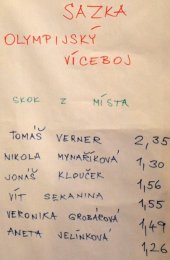 SAZKA
OLYMPIJSKÝ
VÍCEBOJ
SKOK Z MÍSTA
TOMÁŠ VERNER 2,35
NIKOLA MYNAŘÍKOVÁ 1,30
JONÁŠ KLOUČEK 1,56
VÍT SEKANINA 1,55
VERONIKA GROBÁROVÁ 1,49
ANETA JELÍNKOVÁ 1,26